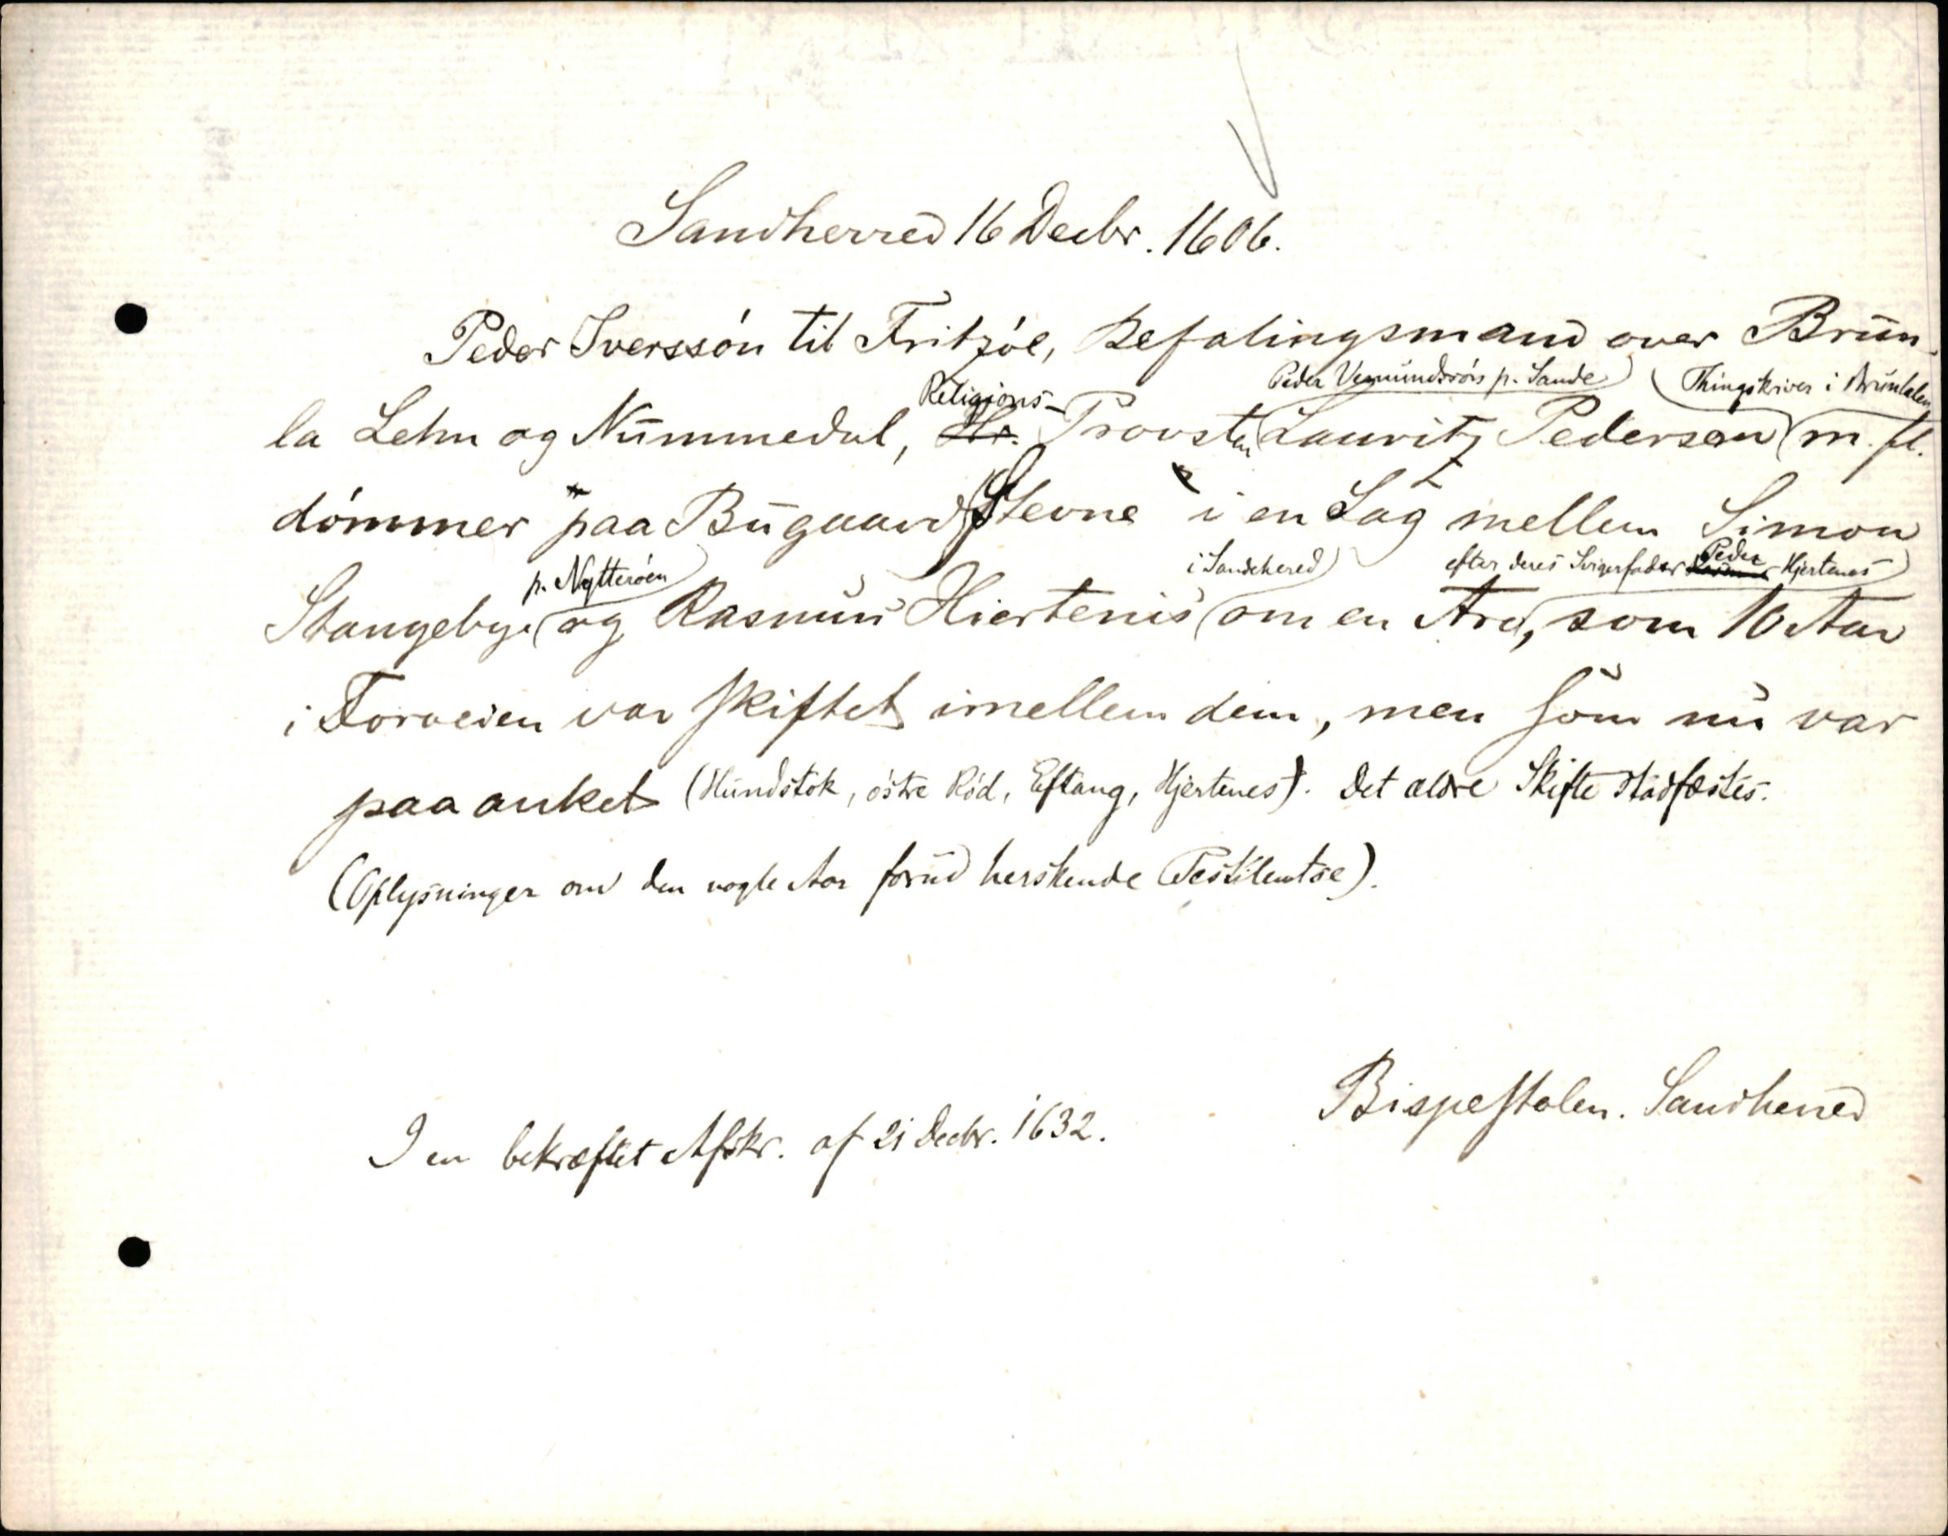 Sandherred 16 Decbr. 1606.
Peder Iverssón til Fritzöe, Befalingsmand over Brun-
la Lehn og Nummedal, Religions- Provsten Peder Vemundssön p. Sande Lauritz Pedersøn Thingskriver i Brunlalen m. fl.
dömmer "paa Bugaard Stevne" i en Sag mellem Simon
Stangebye p. Nøtteröen og Rasmus Hiertenis i Sandehered om en Arv, efter deres Svigerfader Peder Hjertenes som 10 Aar
i Forveien var skiftet imellem dem, men som nu var
paaanket (Hundstok, östre Röd, Eftang, Hjertenes). Det ældre Skifte stadfæstes.
(Oplysninger om den nogle Aar forud herskende Pestilentse).
Bispestolen. Sandherred
I en bekræftet Afskr. af 21 Decbr. 1632.